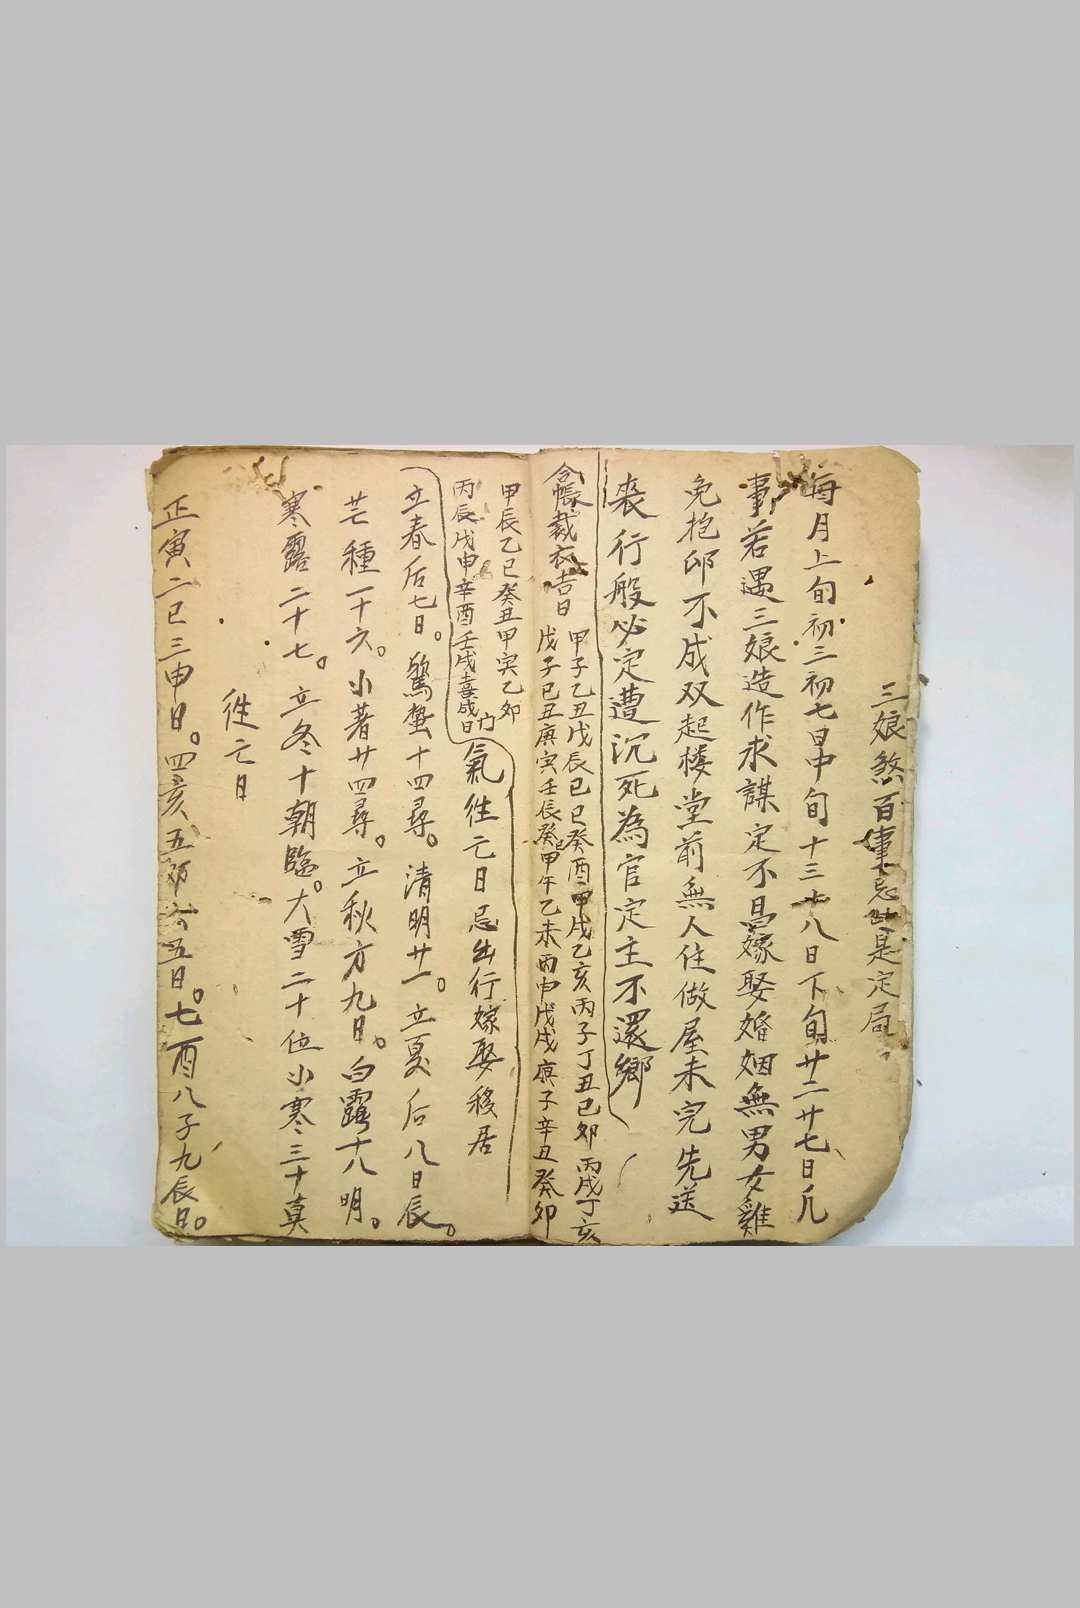 三娘煞百事忌此是定局
每月上旬初三初七日中旬十三十八日下旬廿二廿七日凡
事若遇三娘造作求謀定不昌嫁娶婚姻無男女雞
兔抱卵不成双起楼堂前無人住做屋未完先送
喪行般必定遭沉死為官定主不還鄉
合帳裁衣吉日
甲子乙丑戊辰己巳癸酉甲戌乙亥丙子丁丑己卯丙戌丁亥
戊子己丑庚寅壬辰癸巳甲午乙未丙申戊戌庚子辛丑癸卯
甲辰乙巳癸丑甲寅乙卯
丙辰戊申辛酉壬戌
氣徃亡日忌出行嫁娶移居
立春后七日。驚蟄十四尋。清明廿一。立夏后八日辰。
芒種一十六。小暑廿四尋。立秋方九日。白露十八明。
寒露二十七。立冬十朝臨。大雪二十位小寒三十真
徃亡日
正寅二巳三申日。四亥五卯六五日。七酉八子九辰日。